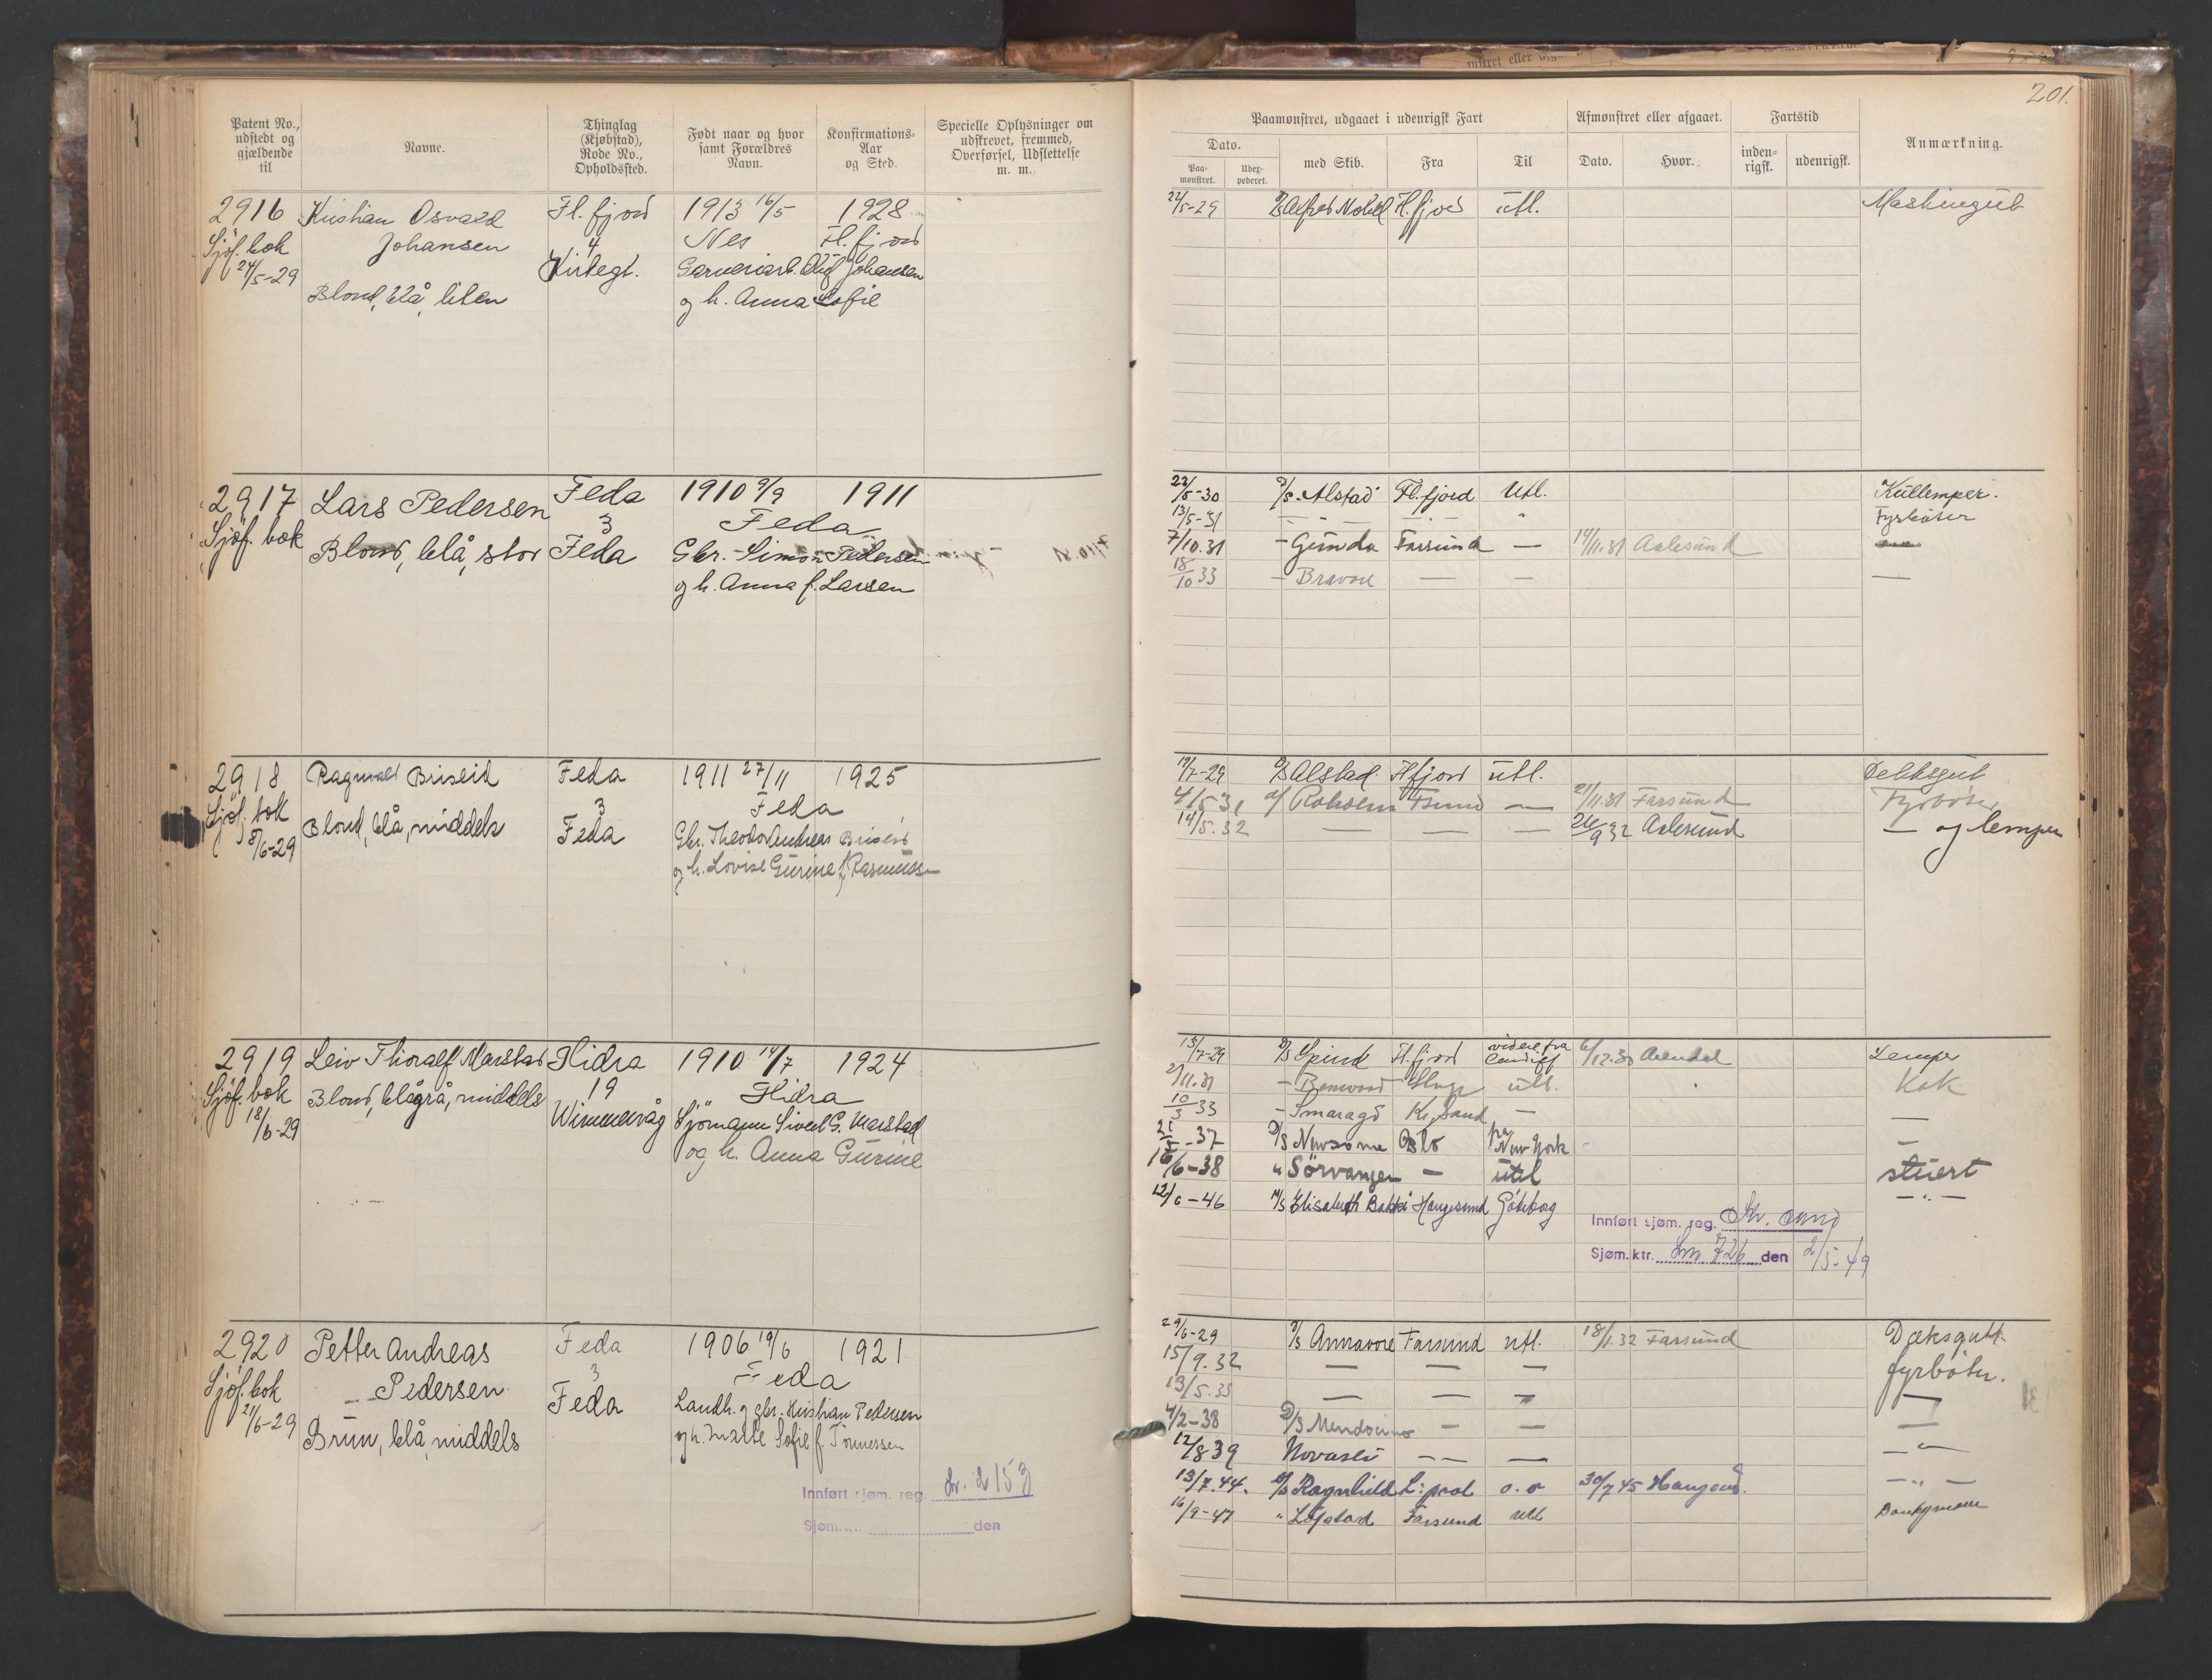 201.
Patent No., udstedt og gjældende til
Navne.
Thinglag (Kjøbstad), Rode No., Opholdssted.
Født naar og hvor samt Forældres Navn.
Konfirmations-Aar og Sted.
Specielle Oplysninger om udskrevet, fremmed, Overførsel, Udslettelse m. m.
Paamønstret, udgaaet i udenrigsk Fart
Afmønstret eller afgaaet.
Fartstid
Anmærkning.
Dato.
med Skib.
Fra
Til
Dato.
Hvor.
inden-rigsk.
udenrigsk.
Paa-mønstret.
Udex-pederet.
2916 Kristian Osvald Fl.fjord 1913 16/5 1928
Sjöf. bok Johansen 4 Nes Fl.fjord
24/5-29 Kirkegt. Garveriarb. Oluf Johansen
Blond, blå, liten og h. Anna Sofie
22/5-29 D/S Alfred Nobel Fl.fjord utl. Maskingut
2917 Lars Pedersen Feda 1910 9/9 1911
Sjöf. bok 3 Feda
Blond, blå, stor Feda Gbr. Simon Pedersen
og h. Anna f. Larsen
22/5-30 D/S Alstad Fl.fjord Utl. Kullemper.
13/5-31 — — — " Fyrböter
7/10.31 - Gunda Farsund — 14/11.31 Aalesund
18/10 33 - Bravore — — —
2918 Ragnvald Briseid Feda 1911 27/11 1925
Sjöf. bok 3 Feda
8/6-29 Blond, blå, middels Feda Gbr. Theodor Andreas Briseid
og h. Lovise Gurine f. Rasmussen
19/7-29 D/S Alstad Fl.fjord utl. Dekksgut
4/5 31 Fsund — 21/11.31 Farsund Fyrböter
14/5.32 — — — 26/9 32 Aalesund — og lemper
2919 Leiv Thoralf Marstad Hidra 1910 14/7 1924
Sjöf. bok Blond, blågrå, middels 19 Hidra
18/6-29 Sjömann Sivert G. Marstad
og h. Anna Gurine
13/7-29 D/S Spind Fl.fjord videre fra Cardiff 6/12.30 Arendal Lemper
2/11.31 - Benwood utl. Kok
10/3 33 - Smaragd Kr.sand — —
21/5-37 D/S Newsome Oslo fra New York —
16/6-38 " Sörvangen — utl stuert
12/6-46 M/S Elisabeth Bakke Haugesund Göteborg — " —
Innført sjøm. reg. Kr. sand
Sjøm.ktr. Lnr 726 den 2/5-49
2920 Petter Andreas Feda 1906 19/6 1921
Sjöf. bok Pedersen 3 Feda
21/6-29 Feda Landh. og gbr. Kristian Pedersen
Brun, blå, middels og h. Malle Sofie f. Tönnessen
Innført sjøm. reg. Lr. 2153
Sjøm.ktr. den
29/6-29 D/S Annavore Farsund utl. 18/1.32 Farsund Dæksgutt.
15/9.32 — — — fyrböter.
13/5.33 — — — —
4/2-38 D/S Mendocino — — —
12/8 39 Novasli — — — — " —
13/7.44. D/S Ragnhild L:pool o.o 30/7 45 Haugesd. — " —
16/9-47 " Löfstad Farsund utl Donkyman